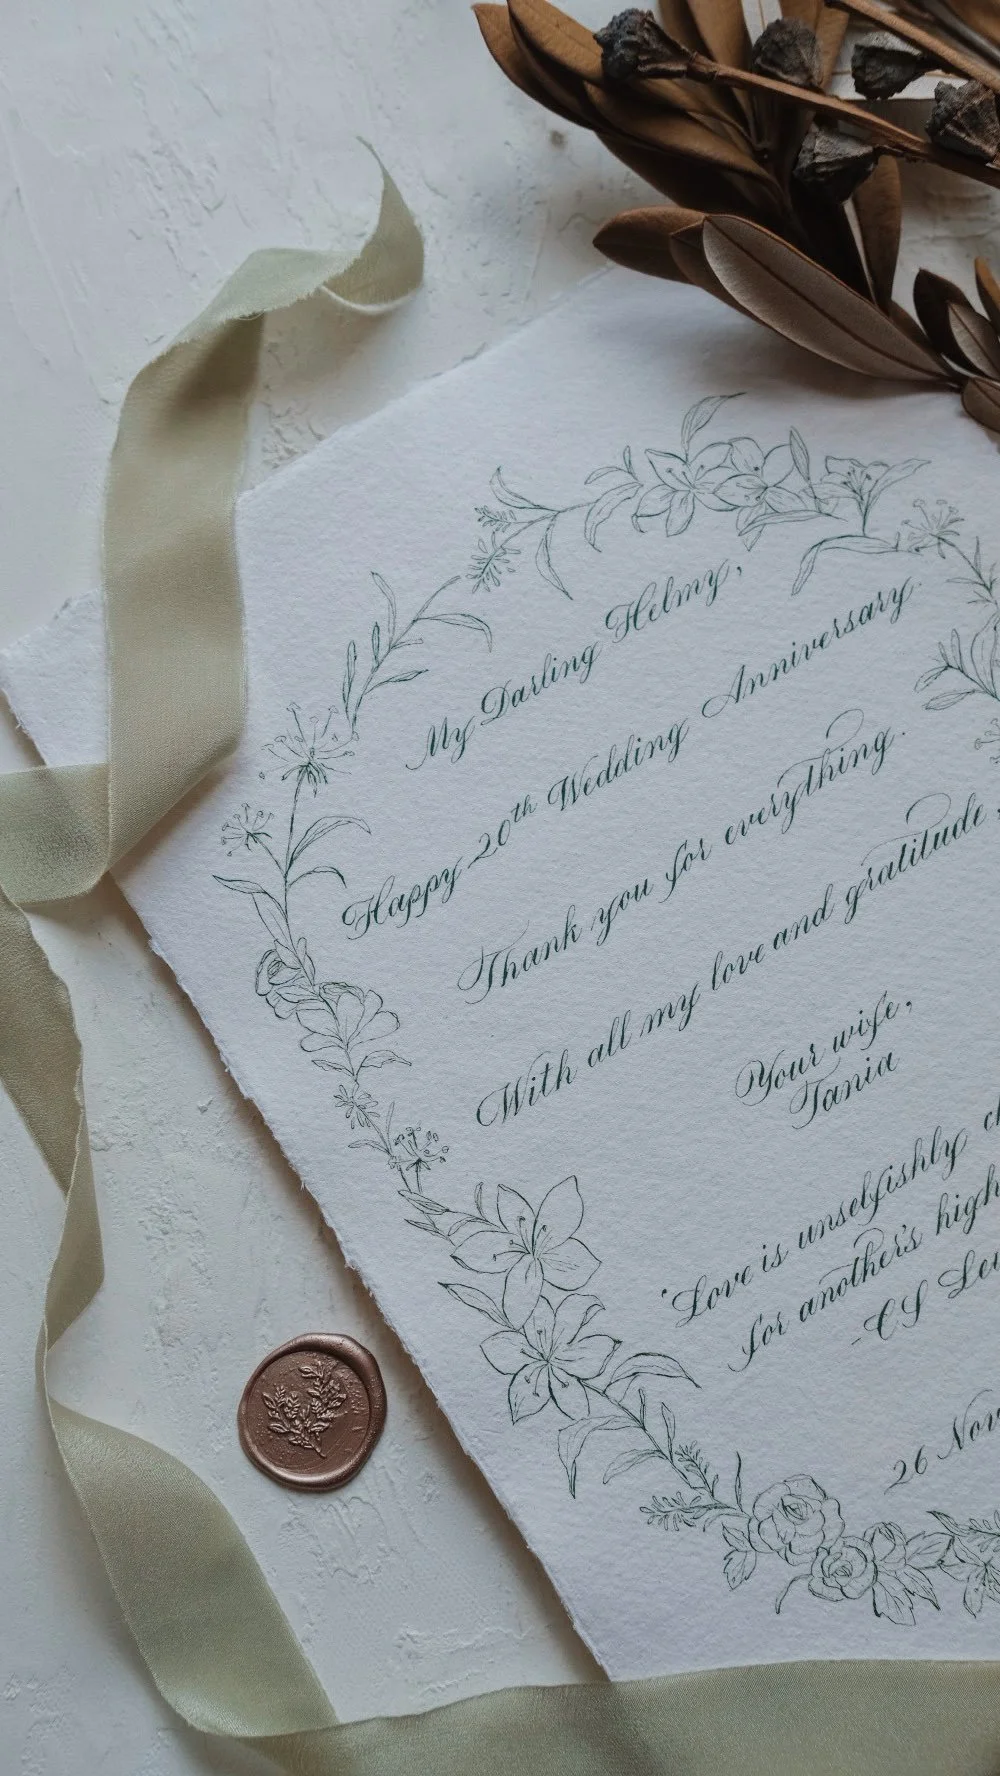 My Darling Helmy,
Happy 20th Wedding Anniversary.
Thank you for everything.
With all my love and gratitude,
Your wife,
Tania
"Love is unselfishly
for another's
-CS
26